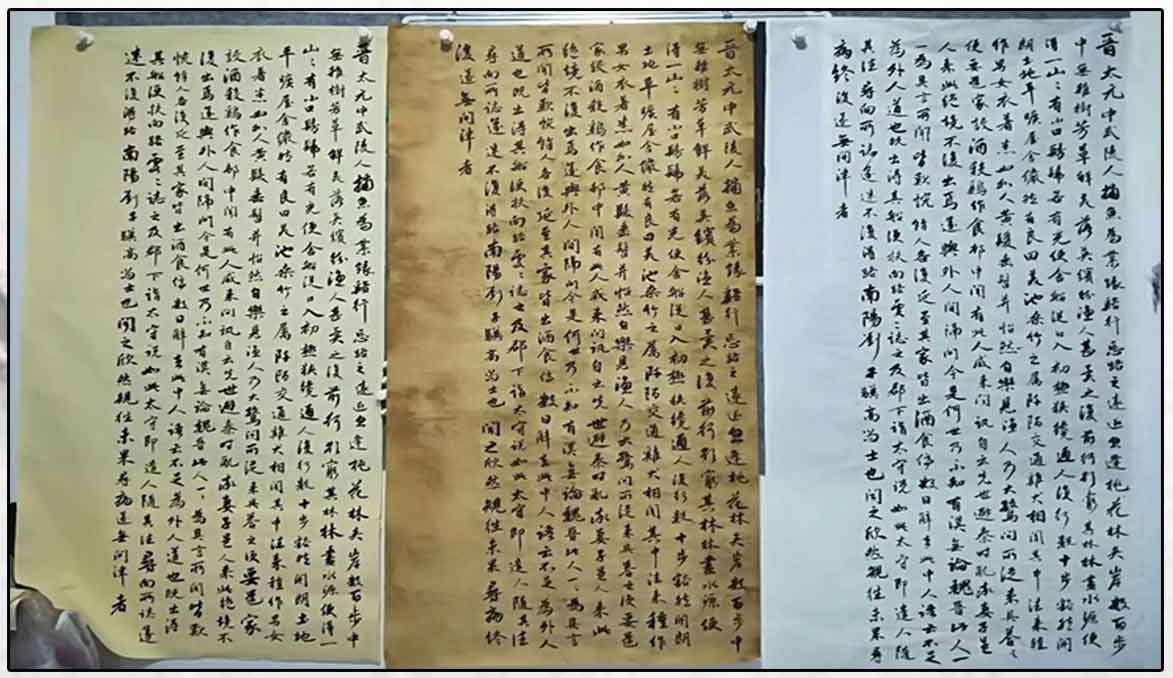 晉太元中武陵人捕魚為業緣谿行忘路之遠近忽逢桃花林夾岸數百步
中無雜樹芳草鮮美落英繽紛漁人甚異之復前行欲窮其林林盡水源便
得一山々有小口髣髴若有光便舍船從口入初極狹纔通人復行數十步豁然開
朗土地平曠屋舍儼然有良田美池桑竹之屬阡陌交通雞犬相聞其中往來種
作男女衣著悉如外人黃髮垂髫并怡然自樂見漁人乃大驚問所從來具答之
便要還家設酒殺雞作食邨中聞有此人咸來問訊自云先世避秦時亂率妻子邑
人來此絕境不復出焉遂與外人間隔問今是何世乃不知有漢無論魏晉此人一
一為具言所聞皆歎惋餘人各復延至其家皆出酒食停數日辭去此中人語云不足
為外人道也既出得其船便扶向路處々誌之及郡下詣太守說如此太守即遣人隨
其往尋向所誌遂迷不復得路南陽劉子驥高尚士也聞之欣然規往未果尋
病終後遂無問津者
晉太元中武陵人捕魚為業緣谿行忘路之遠近忽逢桃花林夾岸數百步中
無雜樹芳草鮮美落英繽紛漁人甚異之復前行欲窮其林林盡水源便
得一山々有小口髣髴若有光便舍船從口入初極狹纔通人復行數十步豁然開朗
土地平曠屋舍儼然有良田美池桑竹之屬阡陌交通雞犬相聞其中往來種作
男女衣著悉如外人黃髮垂髫并怡然自樂見漁人乃大驚問所從來具答之便要還
家設酒殺雞作食邨中聞有此人咸來問訊自云先世避秦時亂率妻子邑人來此
絕境不復出焉遂與外人間隔問今是何世乃不知有漢無論魏晉此人一々為具言
所聞皆歎惋餘人各復延至其家皆出酒食停數日辭去此中人語云不足為外人
道也既出得其船便扶向路處々誌之及郡下詣太守說如此太守即遣人隨其往
尋向所誌遂迷不復得路南陽劉子驥高尚士也聞之欣然規往未果尋病終
後遂無問津者
晉太元中武陵人捕魚為業緣谿行忘路之遠近忽逢桃花林夾岸數百步中
無雜樹芳草鮮美落英繽紛漁人甚異之復前行欲窮其林林盡水源便得一
山々有小口髣髴若有光便舍船從口入初極狹纔通人復行數十步豁然開朗土地
平曠屋舍儼然有良田美池桑竹之屬阡陌交通雞犬相聞其中往來種作男女
衣著悉如外人黃髮垂髫并怡然自樂見漁人乃大驚問所從來具答之便要還家
設酒殺雞作食邨中聞有此人咸來問訊自云先世避秦時亂率妻子邑人來此絕境不
復出焉遂與外人間隔問今是何世乃不知有漢無論魏晉此人一々為具言所聞皆歎
惋餘人各復延至其家皆出酒食停數日辭去此中人語云不足為外人道也既出得
其船便扶向路處々誌之及郡下詣太守說如此太守即遣人隨其往尋向所誌遂
迷不復得路南陽劉子驥高尚士也聞之欣然規往未果尋病遂無問津者